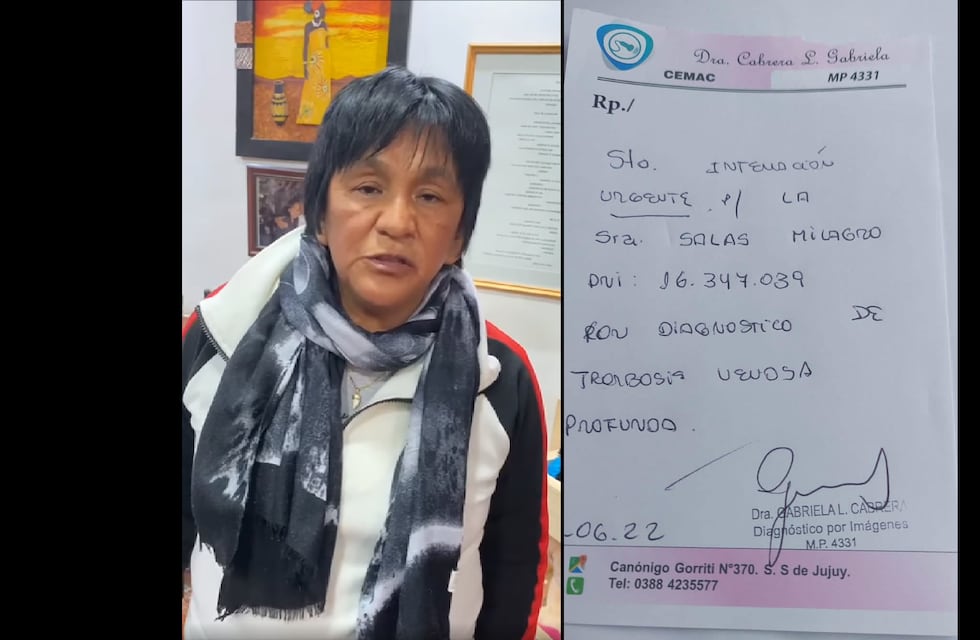 Dra. Cabrera L. Gabriela
CEMAC
MP 4331
Rp./
Sto. INTERNACIÓN
URGENTE p/ LA
Sra. SALAS MILAGRO
DNI: 16.347.039
CON DIAGNOSTICO DE
TROMBOSIS VENOSA
PROFUNDA.
.06.22
Dra. GABRIELA L. CABRERA
Diagnóstico por Imágenes
M.P. 4331
Canónigo Gorriti N°370. S. S de Jujuy.
Tel: 0388 4235577